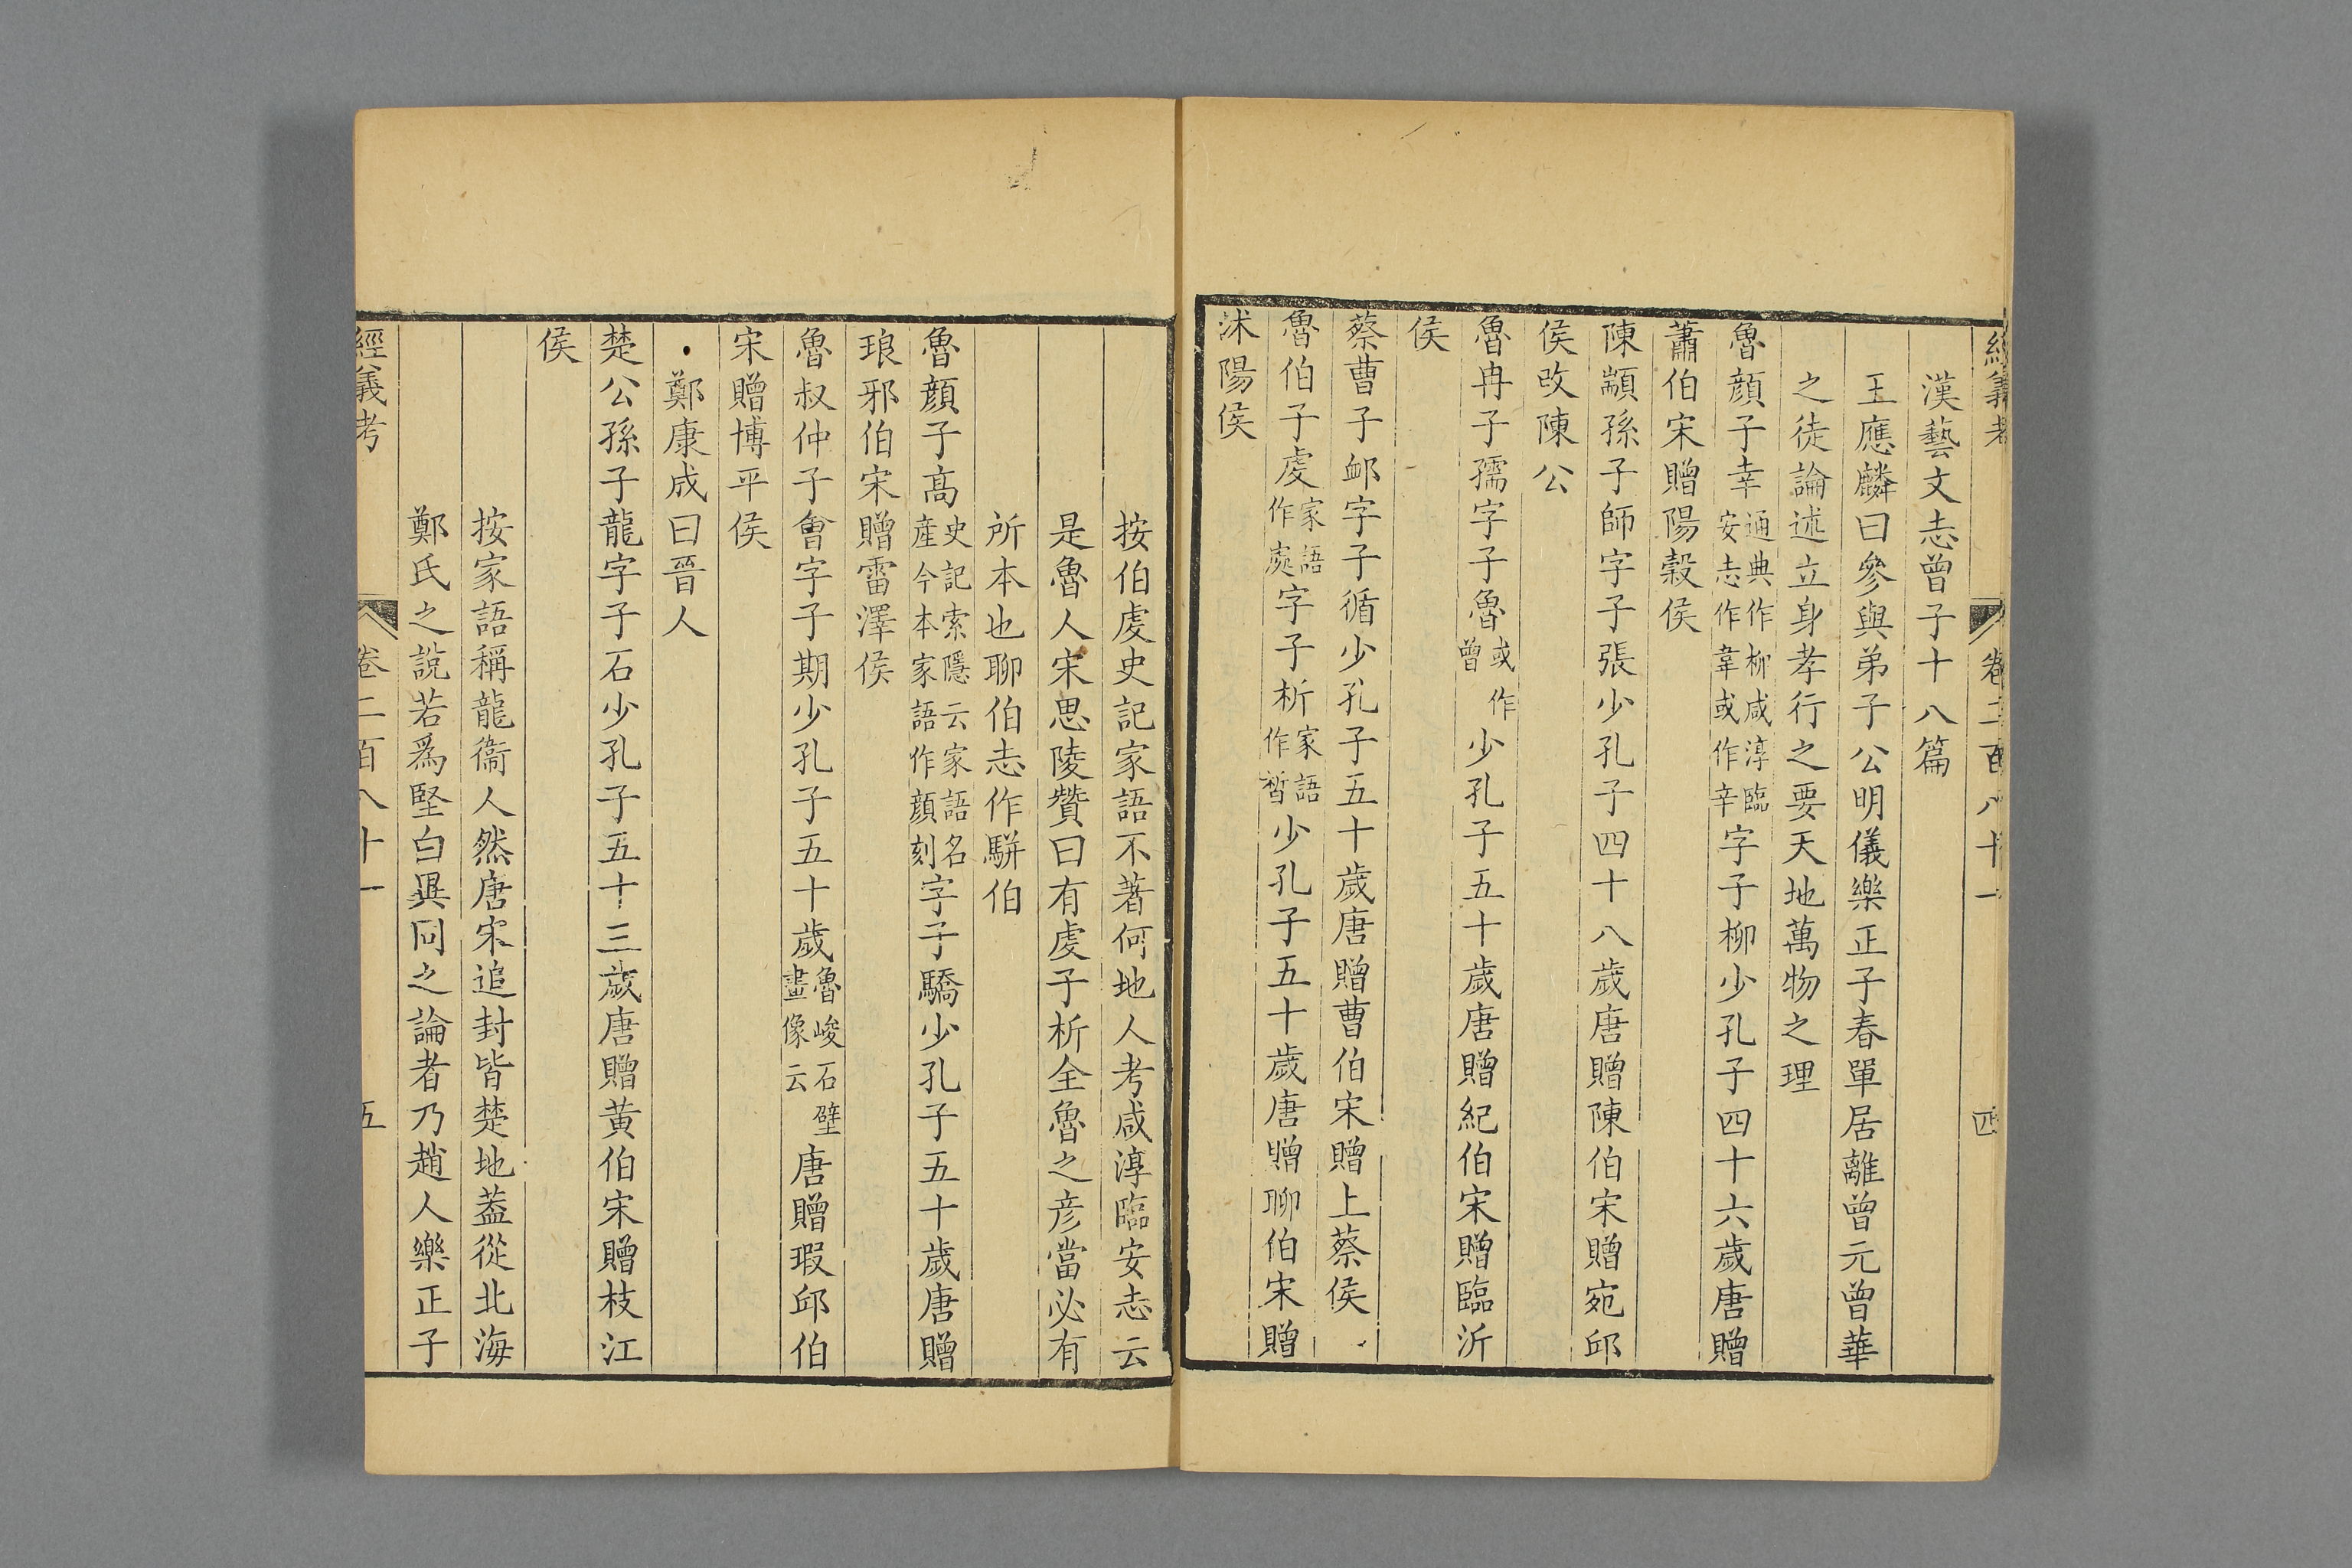 經義考 卷二百八十一 四
漢藝文志曾子十八篇
王應麟曰參與弟子公明儀樂正子春單居離曾元曾華
之徒論述立身孝行之要天地萬物之理
魯顔子幸通典作柳咸淳臨安志作韋或作辛字子柳少孔子四十六歲唐贈
蕭伯宋贈陽穀侯
陳顓孫子師字子張少孔子四十八歲唐贈陳伯宋贈宛邱
侯改陳公
魯冉子孺字子魯或作曾少孔子五十歲唐贈紀伯宋贈臨沂
侯
蔡曹子卹字子循少孔子五十歲唐贈曹伯宋贈上蔡侯
魯伯子虔家語作處字子析家語作晳少孔子五十歲唐贈聊伯宋贈
沭陽侯
按伯虔史記家語不著何地人考咸淳臨安志云
是魯人宋思陵贊曰有虔子析全魯之彦當必有
所本也聊伯志作駢伯
魯顔子高史記索隱云家語名產今本家語作顔刻字子驕少孔子五十歲唐贈
琅邪伯宋贈雷澤侯
魯叔仲子會字子期少孔子五十歲魯峻石壁畫像云唐贈瑕邱伯
宋贈博平侯
鄭康成曰晉人
楚公孫子龍字子石少孔子五十三歲唐贈黄伯宋贈枝江
侯
按家語稱龍衞人然唐宋追封皆楚地葢從北海
鄭氏之說若爲堅白異同之論者乃趙人樂正子
經義考 卷二百八十一 五